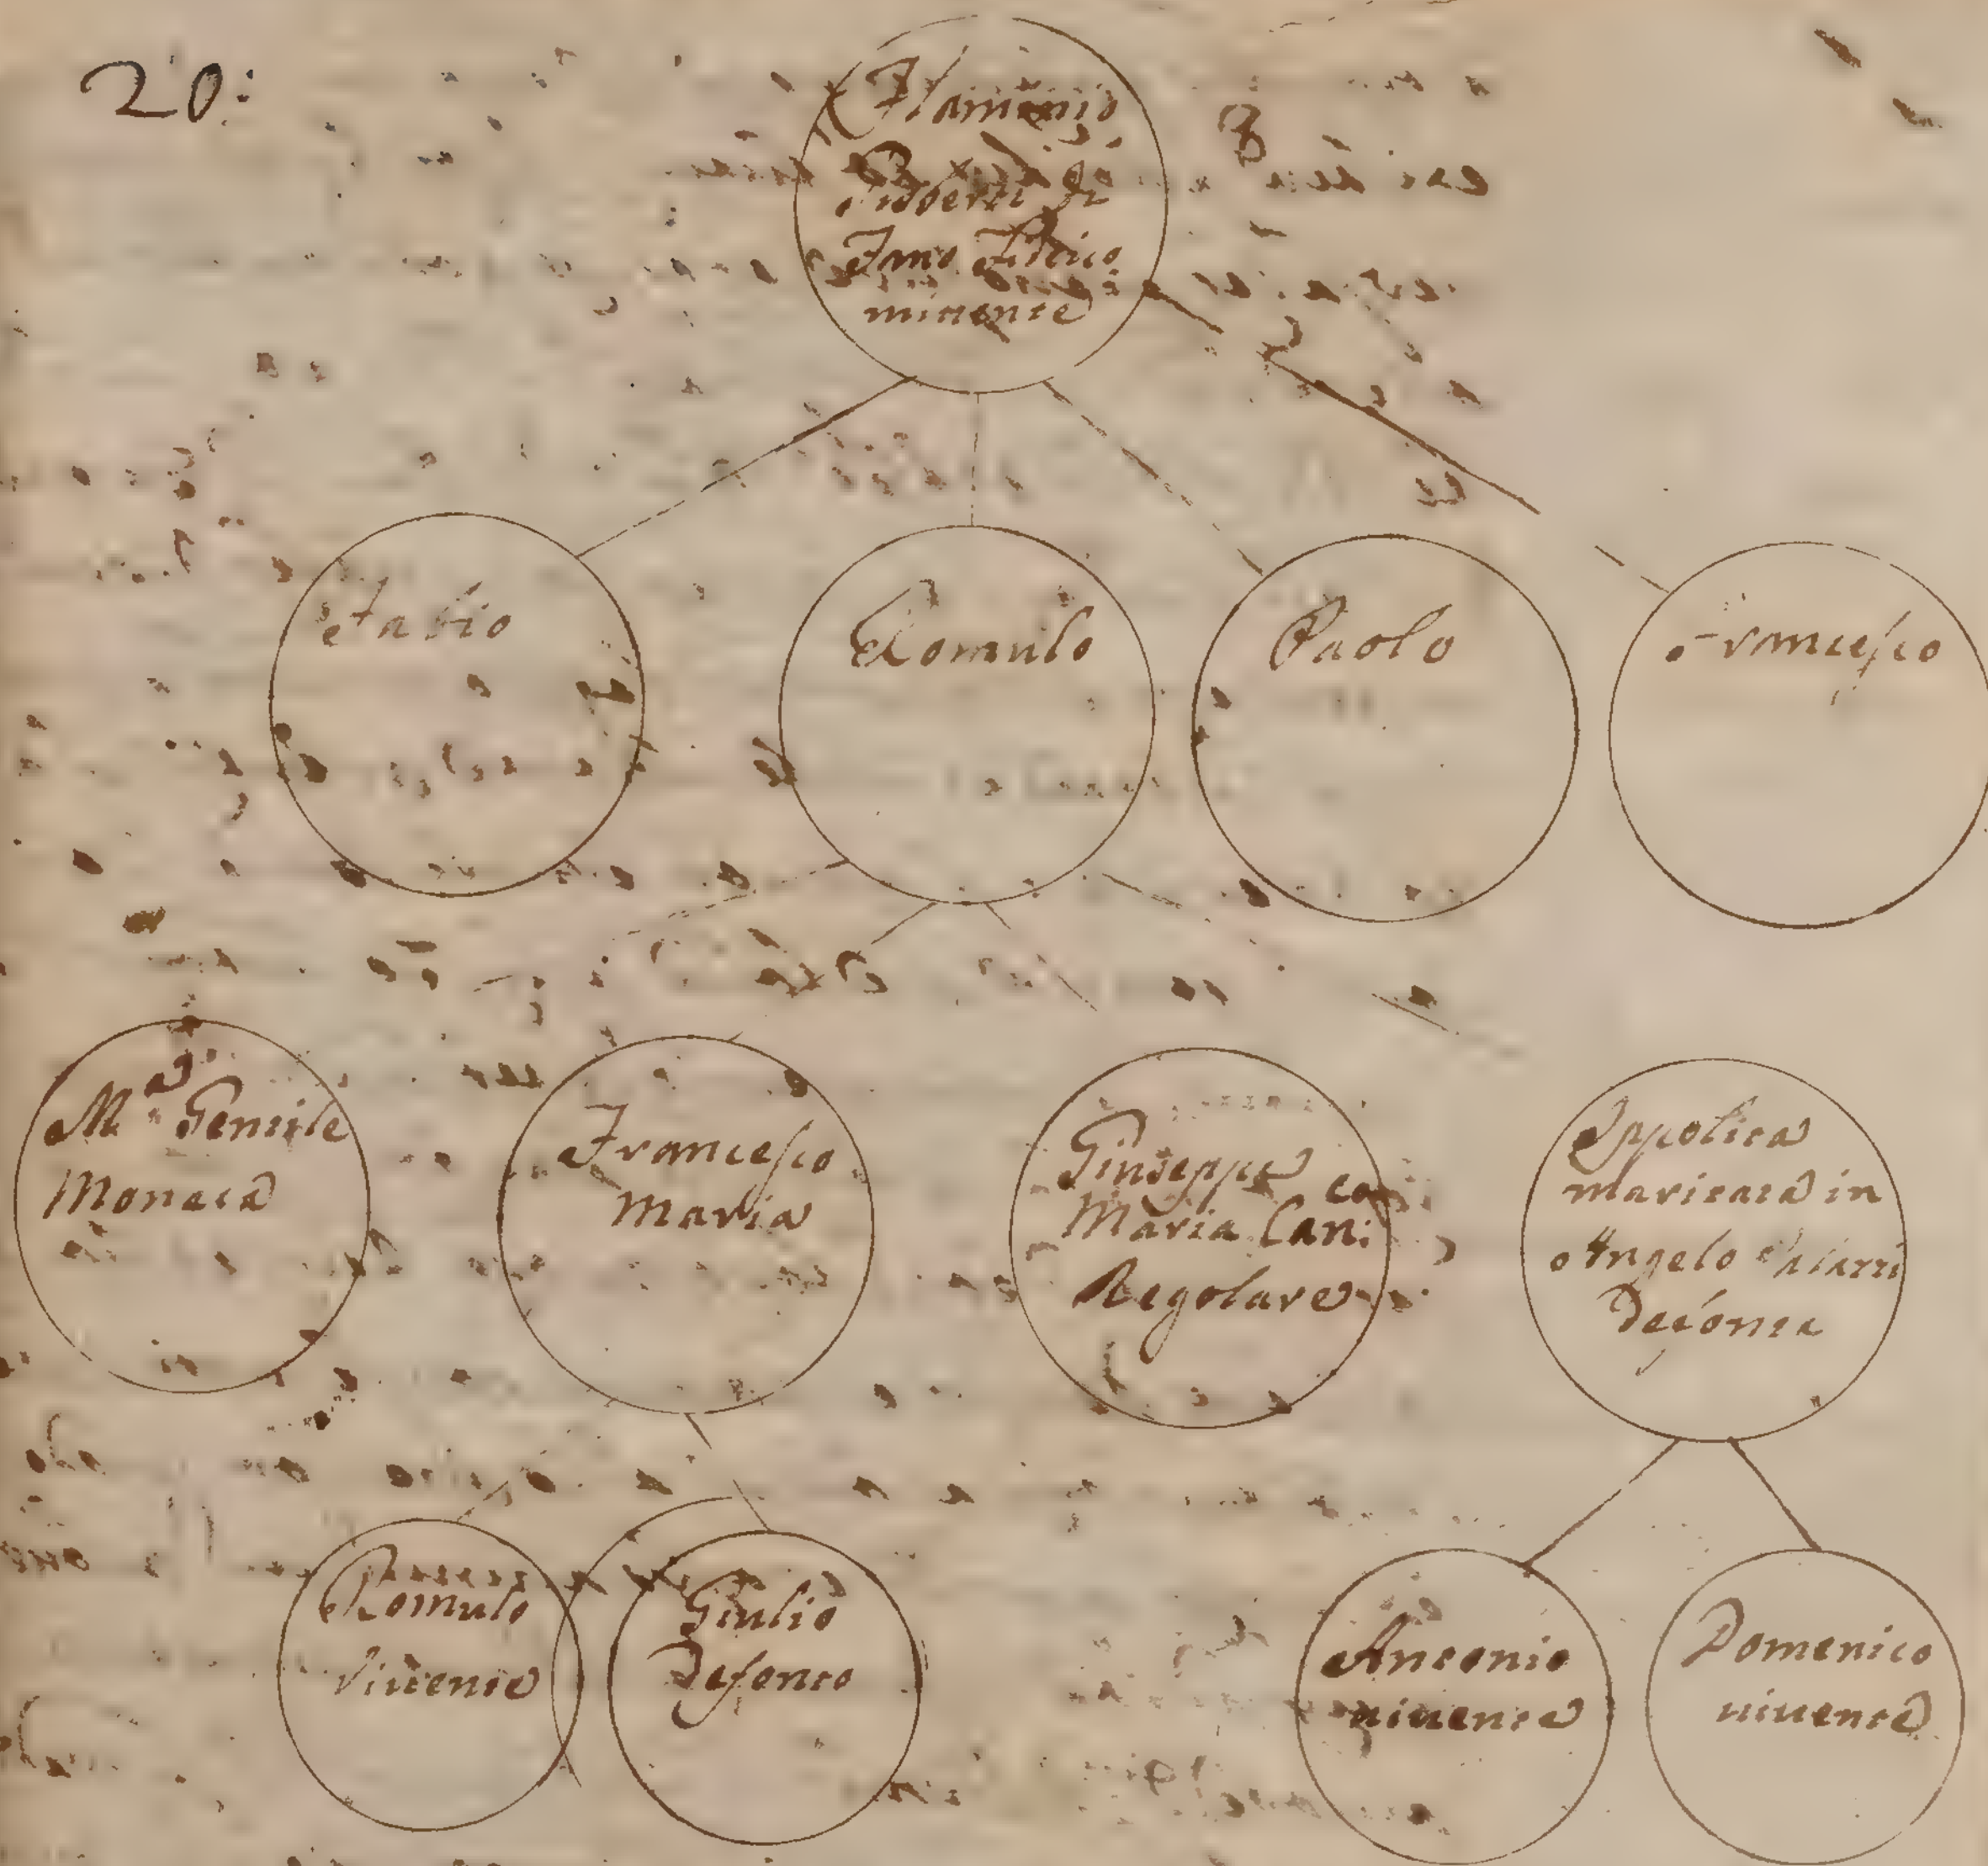 20:
Flaminio
di
Fano Fideico
mittente
Fabio
Romulo
Paolo
Francesco
M.ª Gentile
Monaca
Francesco
Maria
Giuseppe
Maria Can: co
Regolare
Ippolita
maritata in
Angelo
Defonta
Romulo
Viuente
Giulio
Defonto
Antonio
uiuente
Domenico
uiuente